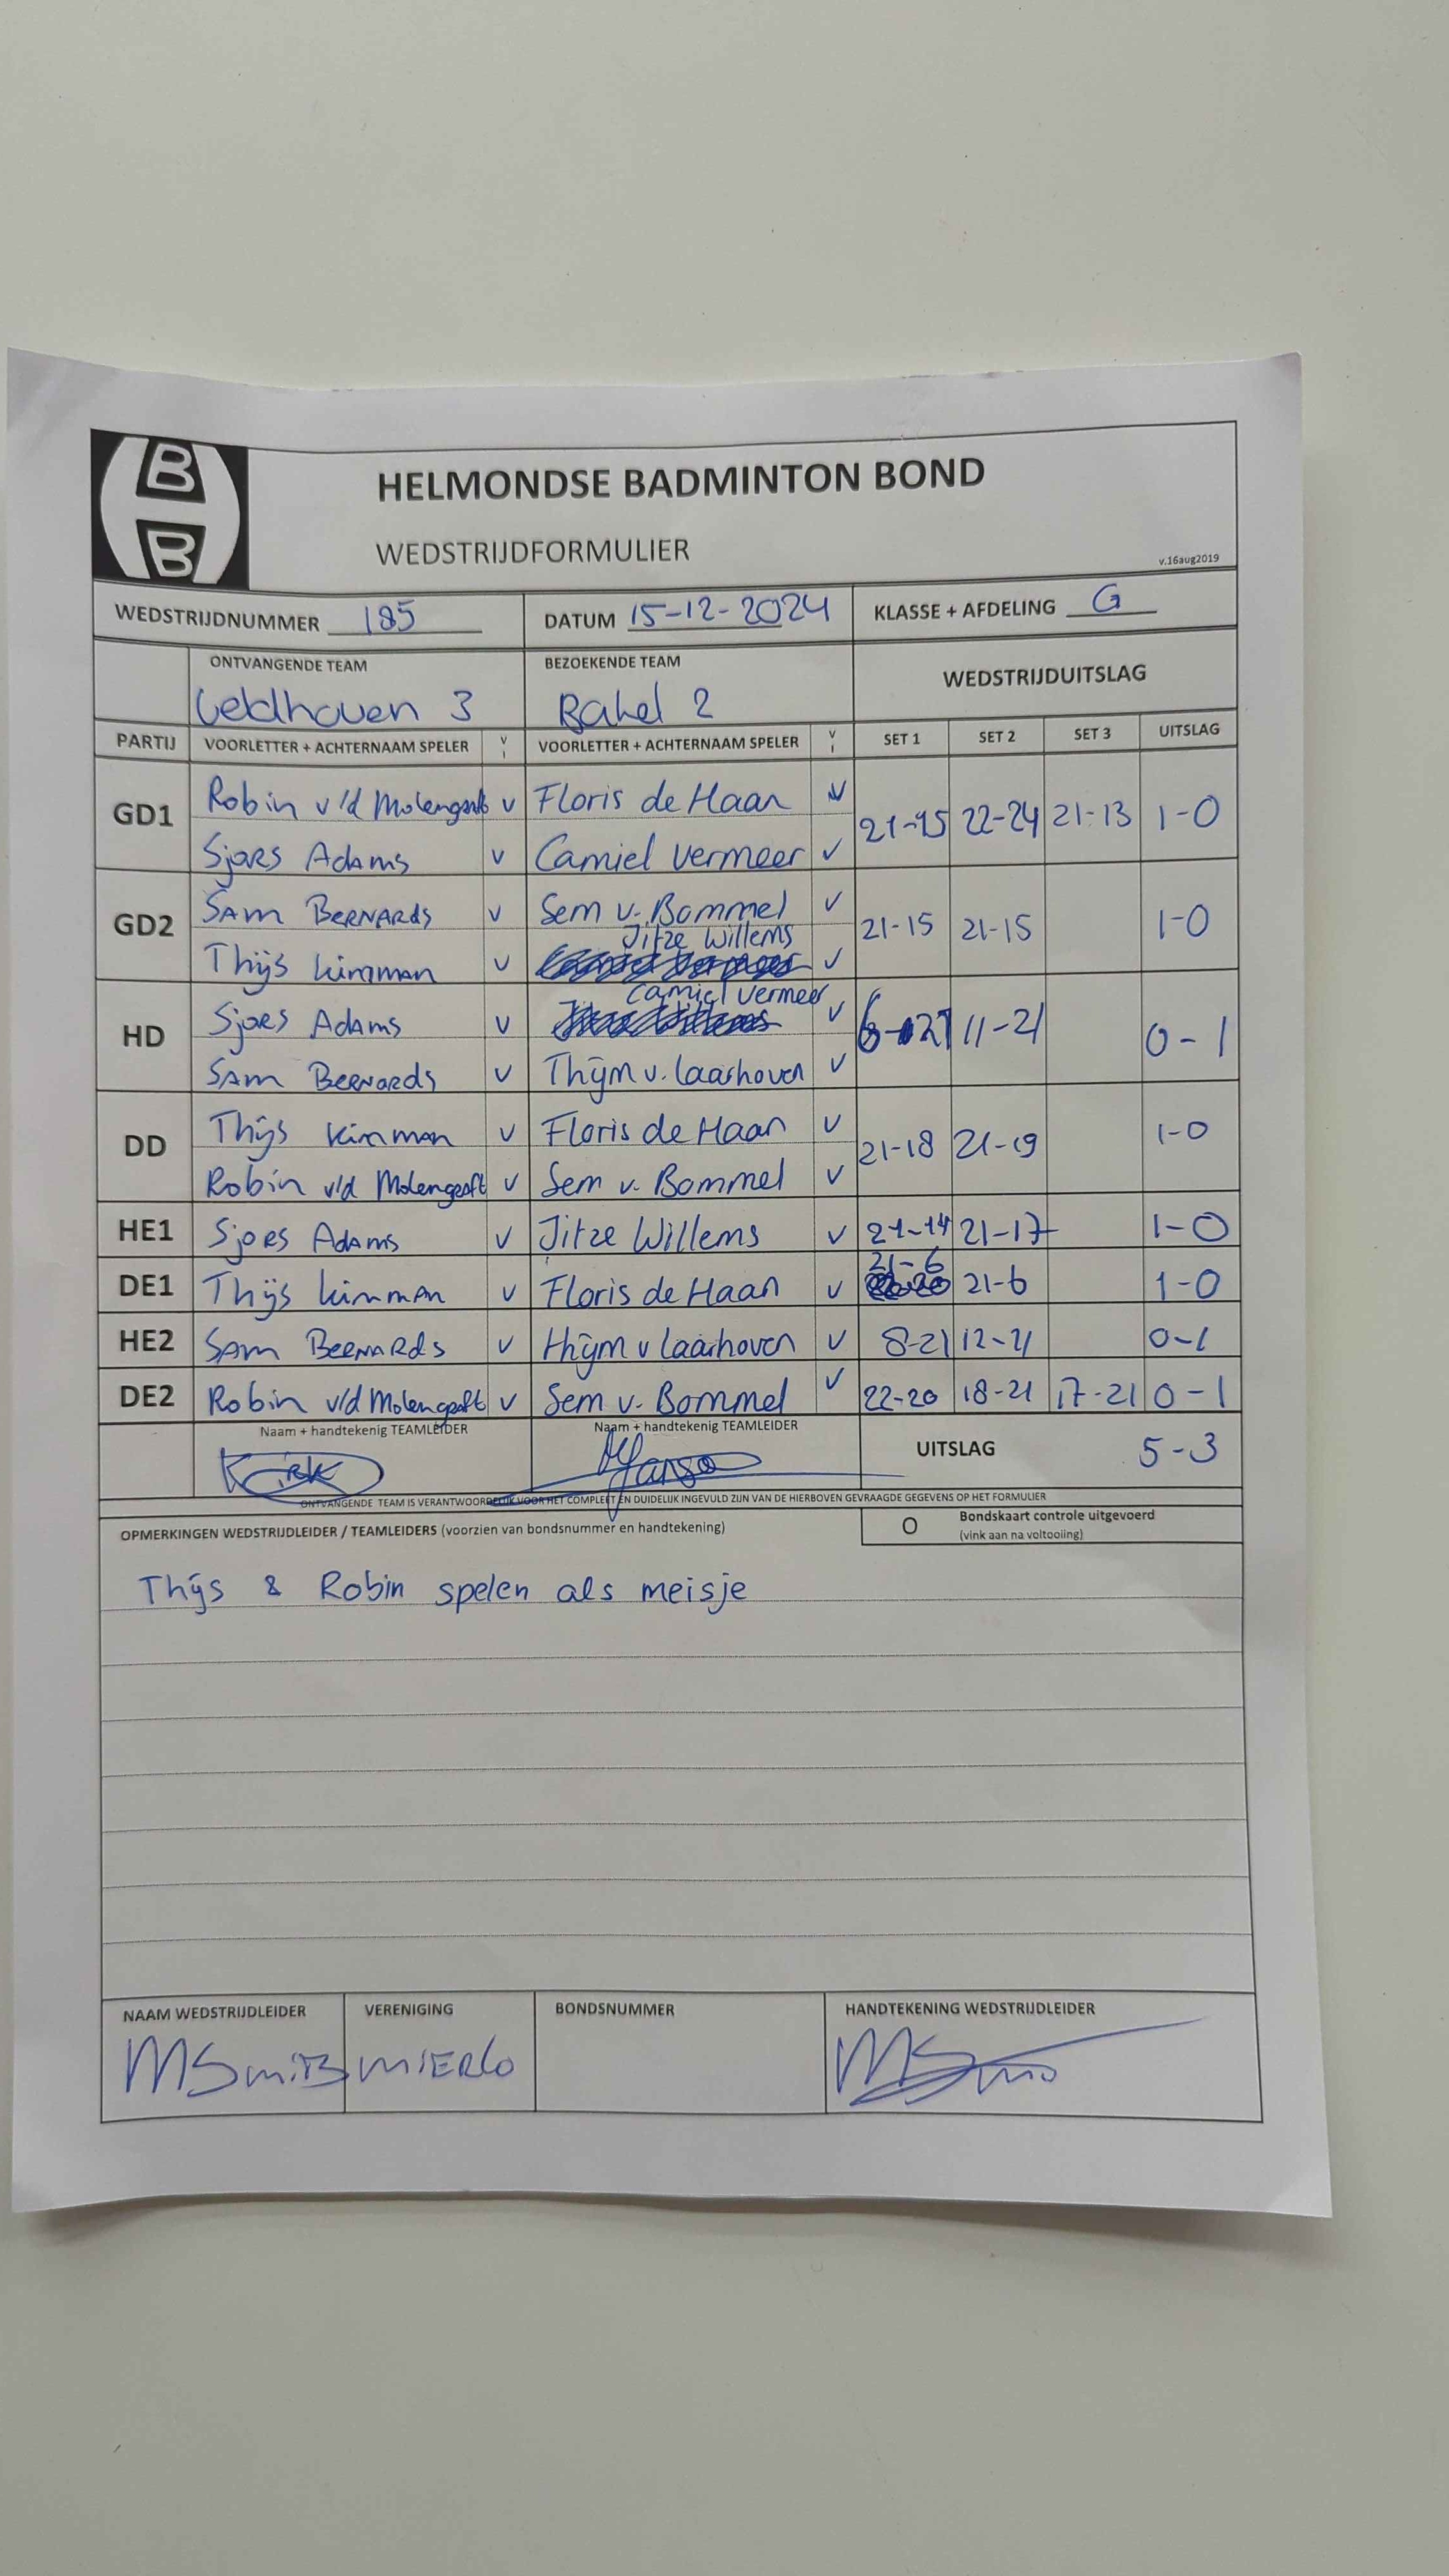 B
B
HELMONDSE BADMINTON BOND
WEDSTRIJDFORMULIER
v.16aug2019
WEDSTRIJDNUMMER 185 DATUM 15-12-2024 KLASSE + AFDELING G
ONTVANGENDE TEAM BEZOEKENDE TEAM WEDSTRIJDUITSLAG
Veldhoven 3 Bakel 2
PARTIJ VOORLETTER + ACHTERNAAM SPELER V I VOORLETTER + ACHTERNAAM SPELER V I SET 1 SET 2 SET 3 UITSLAG
Robin v/d Molengraft v Floris de Haan v
GD1 21-15 22-24 21-13 1-0
Sjors Adams v Camiel Vermeer v
Sam Bernards v Sem v. Bommel v
GD2 Jitze Willems 21-15 21-15 1-0
Thijs Kimman v v
Camiel Vermeer
Sjors Adams v v
HD 11-21 0-1
Sam Bernards v Thijm v. Laarhoven v
Thijs Kimman v Floris de Haan v
DD 21-18 21-19 1-0
Robin v/d Molengraft v Sem v. Bommel v
HE1 Sjors Adams v Jitze Willems v 21-14 21-17 1-0
21-6
DE1 Thijs Kimman v Floris de Haan v 21-6 1-0
HE2 Sam Bernards v Thijm v Laarhoven v 8-21 12-21 0-1
DE2 Robin v/d Molengraft v Sem v. Bommel v 22-20 18-21 17-21 0-1
Naam + handtekenig TEAMLEIDER Naam + handtekenig TEAMLEIDER UITSLAG 5-3
ONTVANGENDE TEAM IS VERANTWOORDELIJK VOOR HET COMPLEET EN DUIDELIJK INGEVULD ZIJN VAN DE HIERBOVEN GEVRAAGDE GEGEVENS OP HET FORMULIER
OPMERKINGEN WEDSTRIJDLEIDER / TEAMLEIDERS (voorzien van bondsnummer en handtekening) O Bondskaart controle uitgevoerd
(vink aan na voltooiing)
Thijs & Robin spelen als meisje
NAAM WEDSTRIJDLEIDER VERENIGING BONDSNUMMER HANDTEKENING WEDSTRIJDLEIDER
MSmits MIERLO